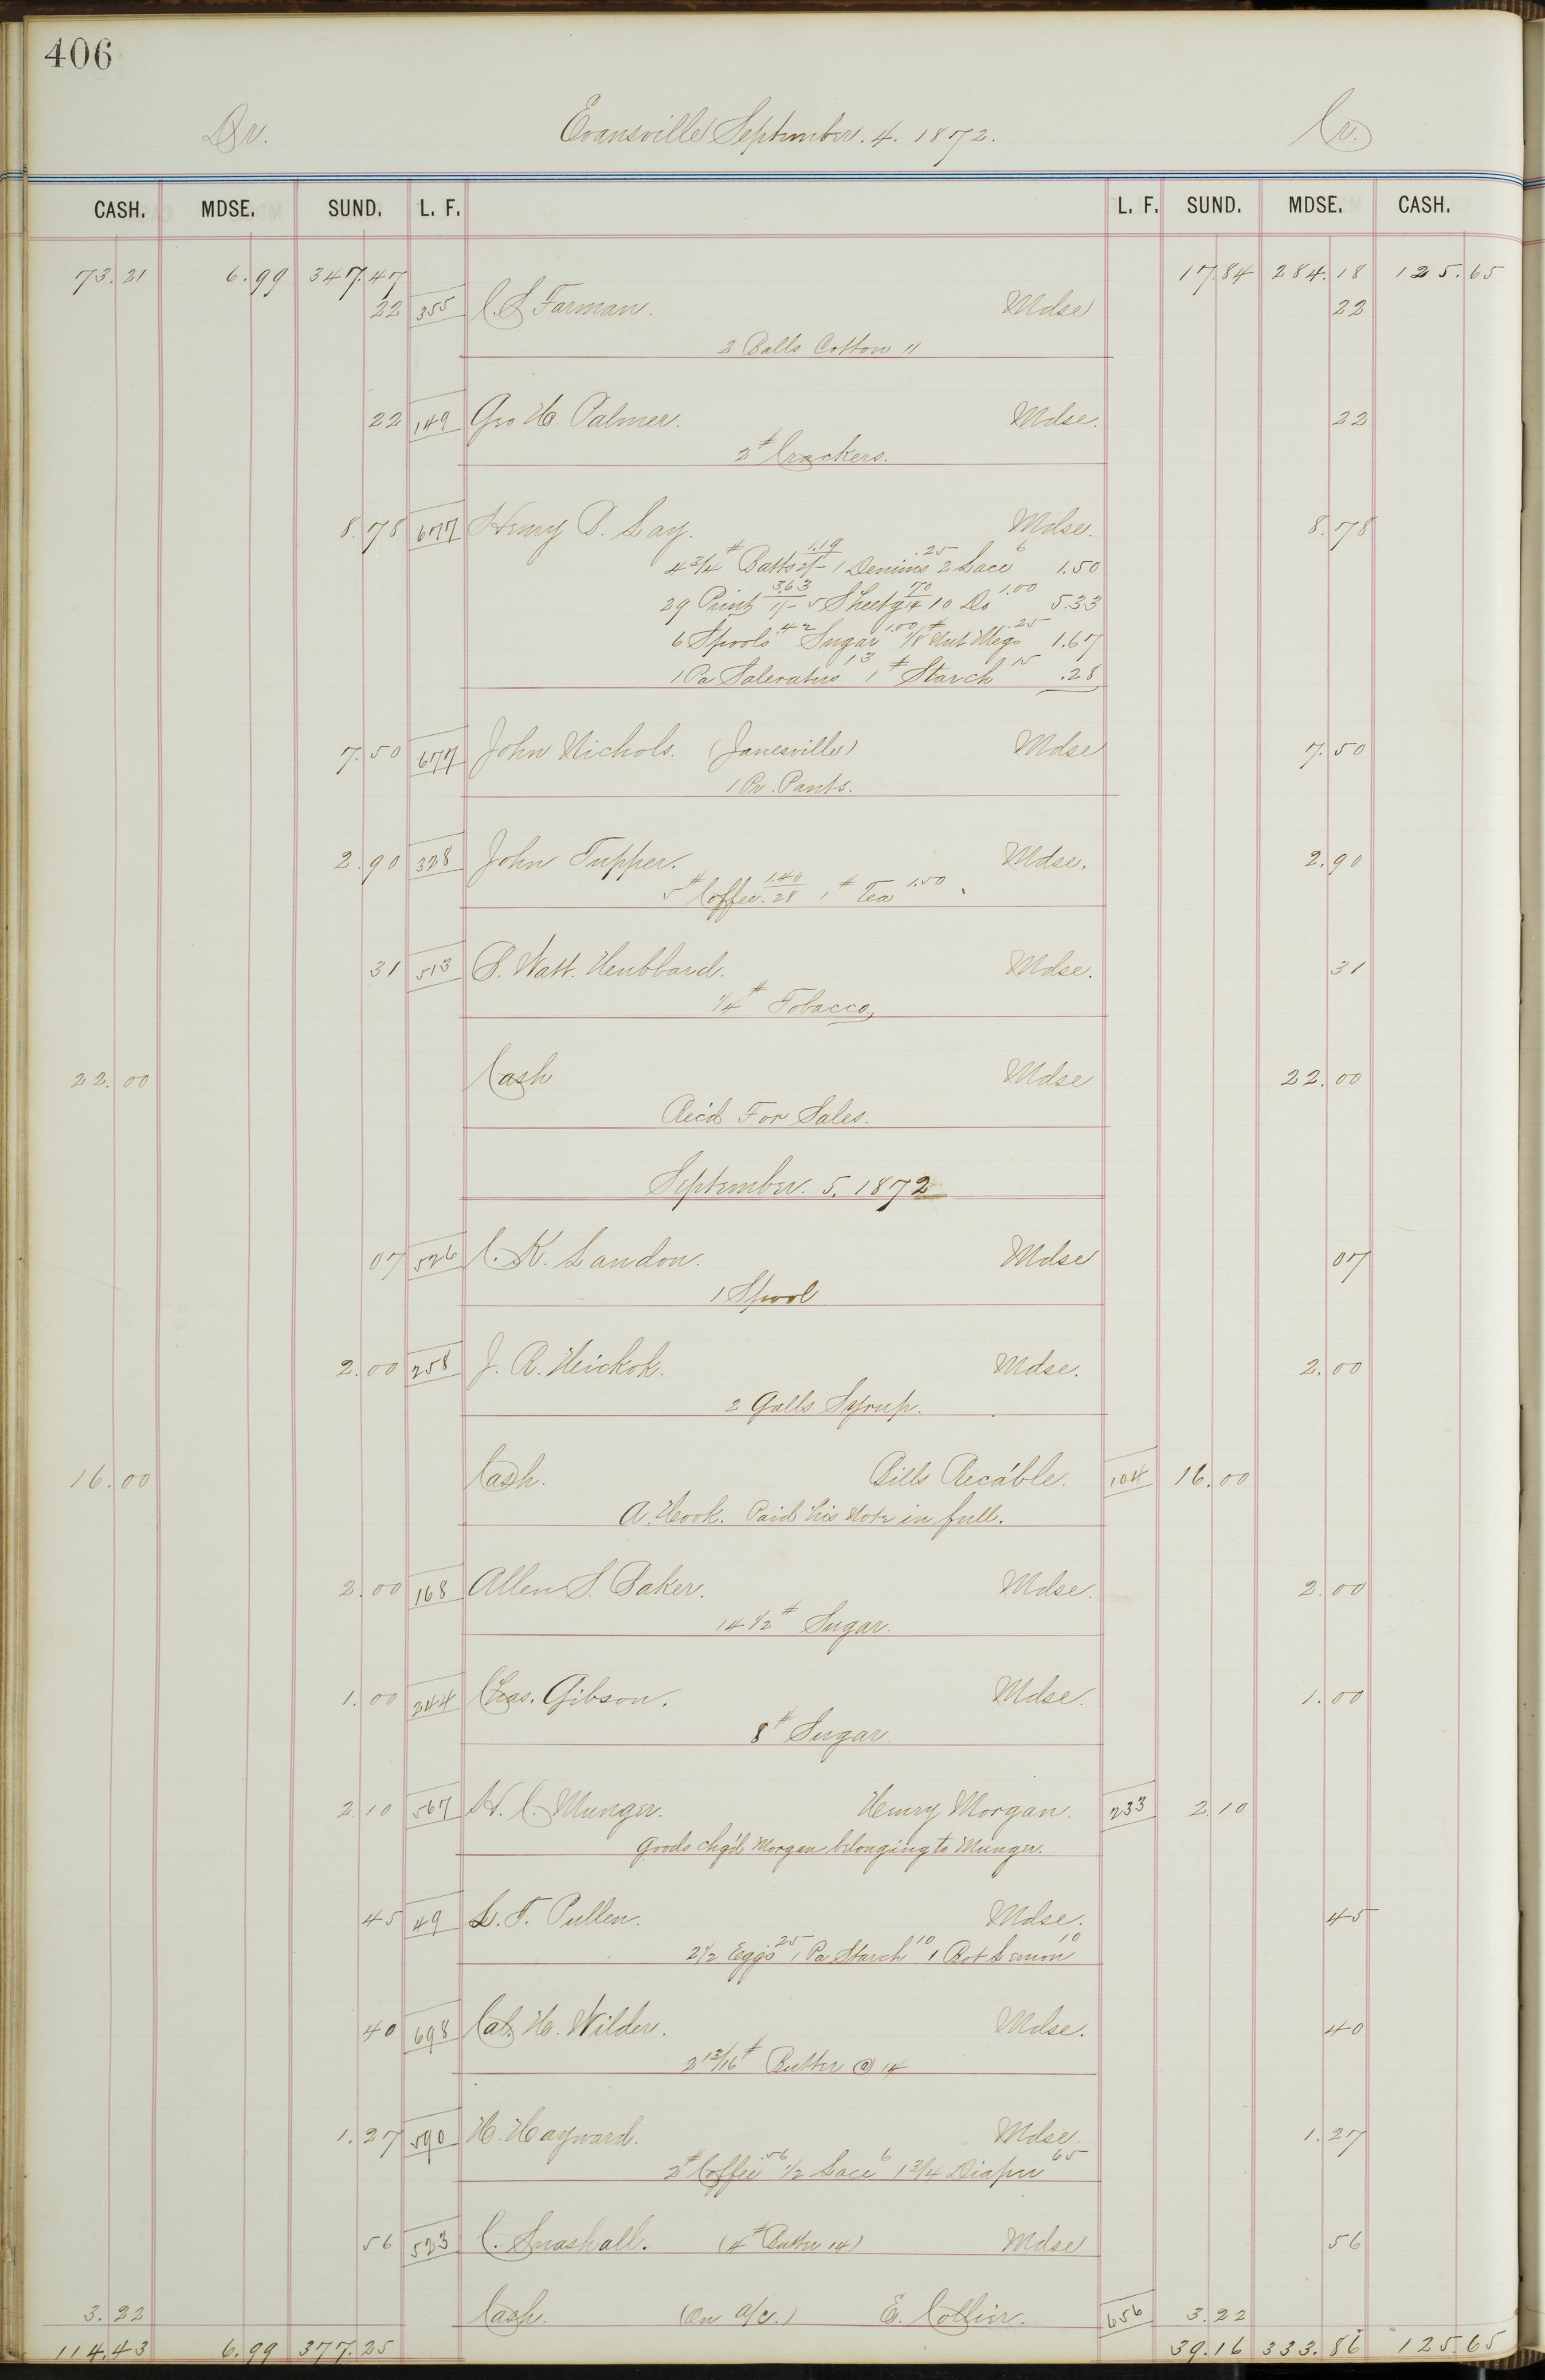 406
Dr. Evansville September. 4. 1872. Cr.
CASH. MDSE. SUND. L. F. L. F. SUND. MDSE. CASH.
73.21 6.99 347.47 17.84 284.18 125.65
22 355 C. S Farman. Mdse 22
2 Balls Cotton 11
22 149 Geo H. Palmer. Mdse. 22
2# Crackers.
8.78 677 Henry D. Lay. Mdse. 8.78
4 3/4# Batts 2/- 1.19 1 Denims .25 2 Lace 6 1.50
29 Print 1/- 3.63 5 Sheetg 14 70 10 Do 1.00 5.33
6 Spools .42 Sugar 1.00 1/8# Nut Megs .25 1.67
1 Pa Saleratus 13 1# Starch 15 .28
7.50 677 John Nichols. (Janesville) Mdse 7.50
1 Pr. Pants.
2.90 328 John Tupper. Mdse. 2.90
5# Coffee .28 1.40 1# Tea 1.50
31 513 S. Watt. Hubbard. Mdse. 31
1/4# Tobacco,
22.00 Cash Mdse 22.00
Rec'd For Sales.
September. 5. 1872
07 526 C. K. Landon. Mdse 07
1 Spool
2.00 258 J. R. Heickok. Mdse. 2.00
2 Galls Syrup.
16.00 Cash. Bills Rec'able. 104 16.00
A. Hook. Paid his Note in full.
2.00 168 Allen S. Baker. Mdse. 2.00
14 1/2# Sugar.
1.00 244 Chas. Gibson. Mdse. 1.00
8# Sugar
2.10 567 H. C. Munger. Henry Morgan. 233 2.10
Goods chg'd Morgan belonging to Munger.
45 49 L. T. Pullen. Mdse. 45
2 1/2 Eggs 25 1 Pa Starch 10 1 Bot Lemon 10
40 698 Cal. H. Wilder. Mdse. 40
2 13/16# Butter @ 14
1.27 590 H. Hayward. Mdse. 1.27
2# Coffee .56 1/2 Lace 6 1 3/4 Diaper 65
56 523 C. Snashall. (4# Butter 14) Mdse 56
3.22 Cash. (On a/c.) E. Collier. 656 3.22
114.43 6.99 377.25 39.16 333.86 125.65